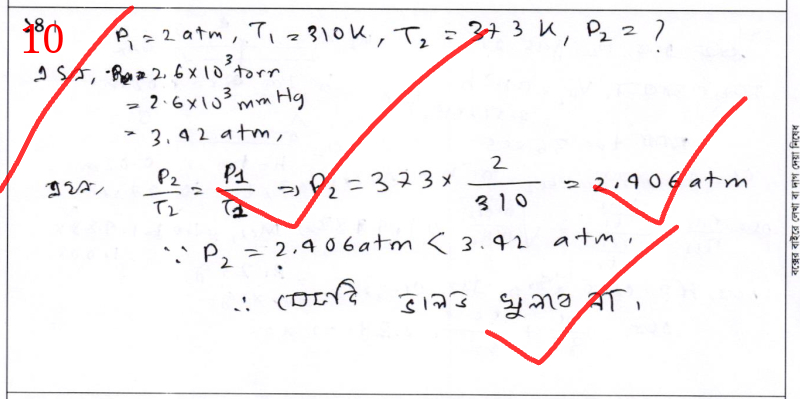 ১৪।
10
P₁ = 2 atm, T₁ = 310K, T₂ = 373 K, P₂ = ?
2.6×10³ torr
= 2.6×10³ mmHg
= 3.42 atm,
এখন, P₂/T₂ = P1/T1 ⇒ P₂ = 373 × 2/310 = 2.406 atm
∵ P₂ = 2.406 atm < 3.42 atm.
∴ ভালভ খুলবে না।
বক্সের বাইরে লেখা বা দাগ দেয়া নিষেধ